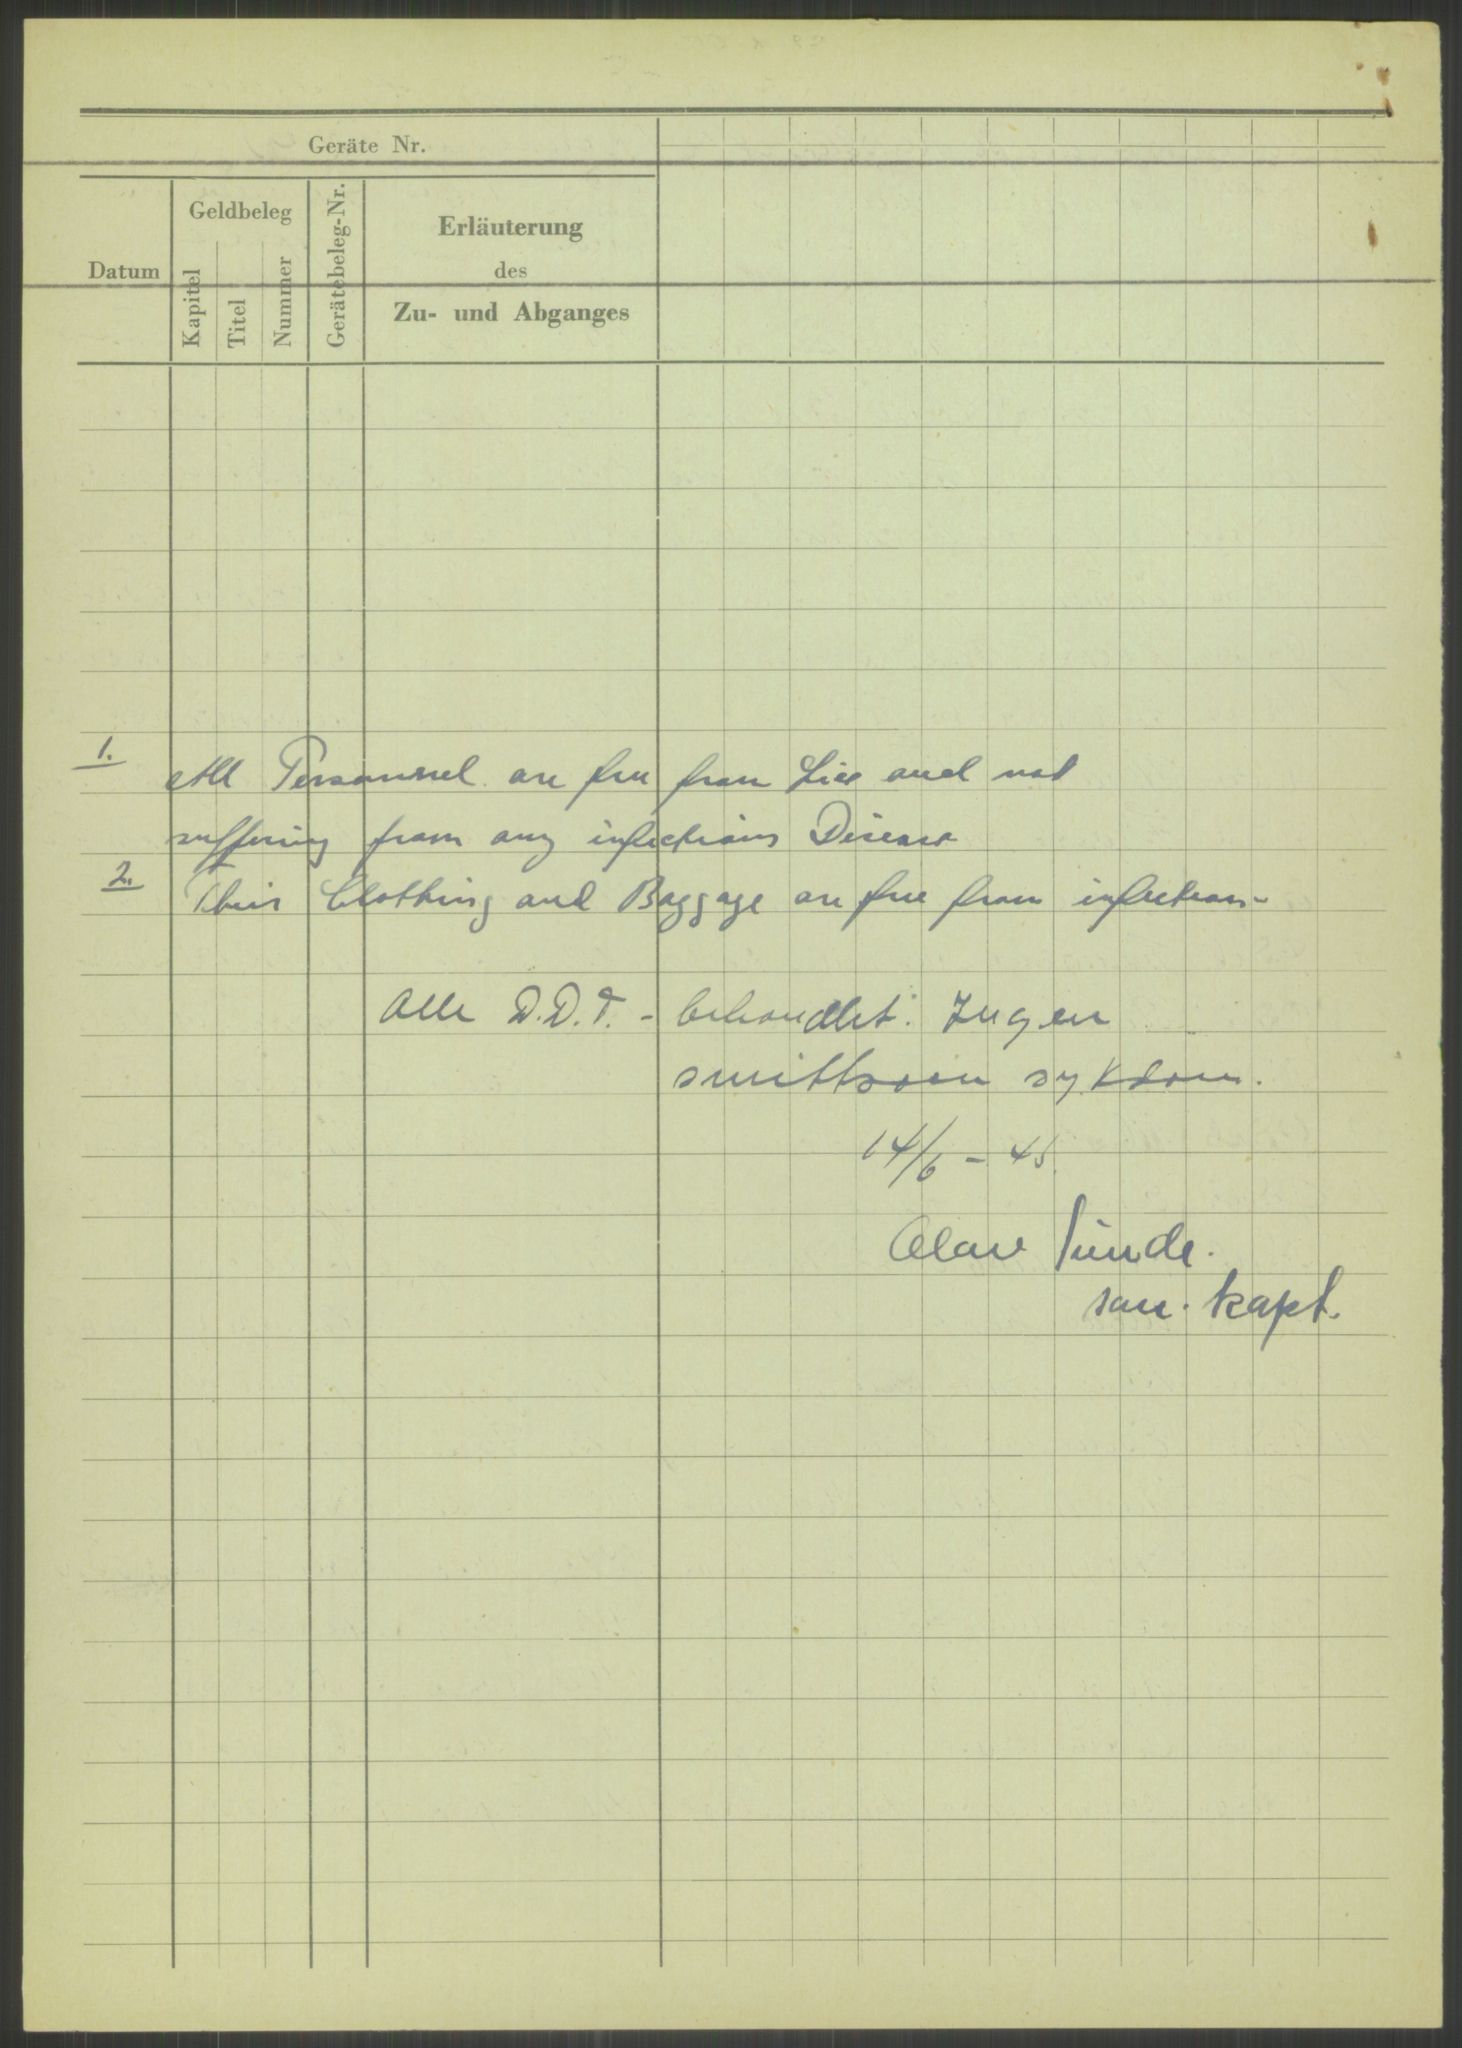 Geräte Nr.
Datum
Geldbeleg
Kapitel
Titel
Nummer
Gerätebeleg-Nr.
Erläuterung
des
Zu- und Abganges
1. All Personnel are free from Lice and not
suffering from any infectious Disease
2. Their Clothing and Baggage are free from infection-
Alle D.D.T. - behandlet. Ingen
smittsom sykdom.
14/6 - 45
Olav Sunde.
san. kapt.